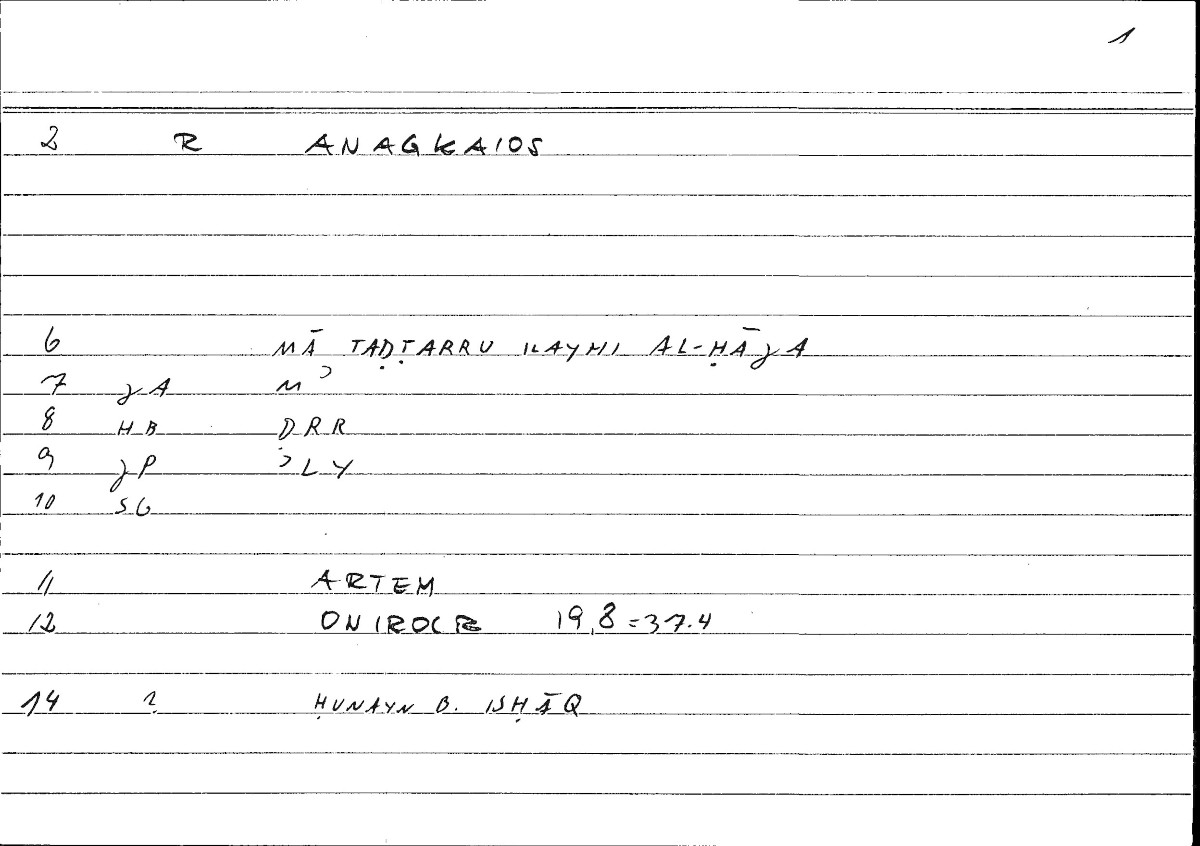 1
2 R ANAGKAIOS
6 MĀ TAḌṬARRU ILAYHI AL-ḤĀǧA
7 ǧA Mʾ
8 HB DRR
9 ǧP ʾLY
10 SG
11 ARTEM
12 ONIROCR 19,8=37.4
14 2 ḤUNAYN B. ISḤĀQ